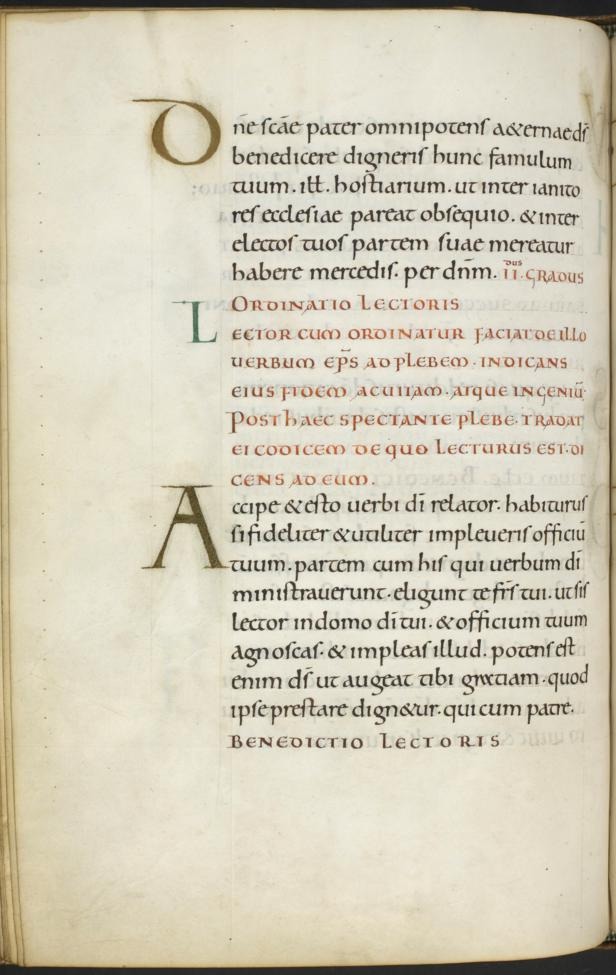 Dñe scãe pater omnipotens a&erne ds̄
benedicere digneris hunc famulum
tuum . ill̄ . hostiarium . ut inter ianito
res ecclesiae pareat obsequio . & inter
electos tuos partem suae mereatur
habere mercedis . per dñm . II dus GRADUS
ORDINATIO LECTORIS
LECTOR CUM ORDINATUR FACIAT DE ILLO
UERBUM EP̄S AD PLEBEM . INDICANS
EIUS FIDEM AC UITAM . ATQUE INGENIŪ
POST HAEC SPECTANTE PLEBE . TRADAT
EI CODICEM DE QUO LECTURUS EST . DI
CENS AD EUM .
Accipe & esto uerbi dī relator . habiturus
si fideliter & utiliter impleueris officiū
tuum . partem cum his qui uerbum dī
ministrauerunt . eligunt te frs̄ tui . ut sis
lector in domo dī tui . & officium tuum
agnoscas . & impleas illud . potens est
enim ds̄ ut augeat tibi gratiam . quod
ipse prestare dign&ur . qui cum patre .
BENEDICTIO LECTORIS